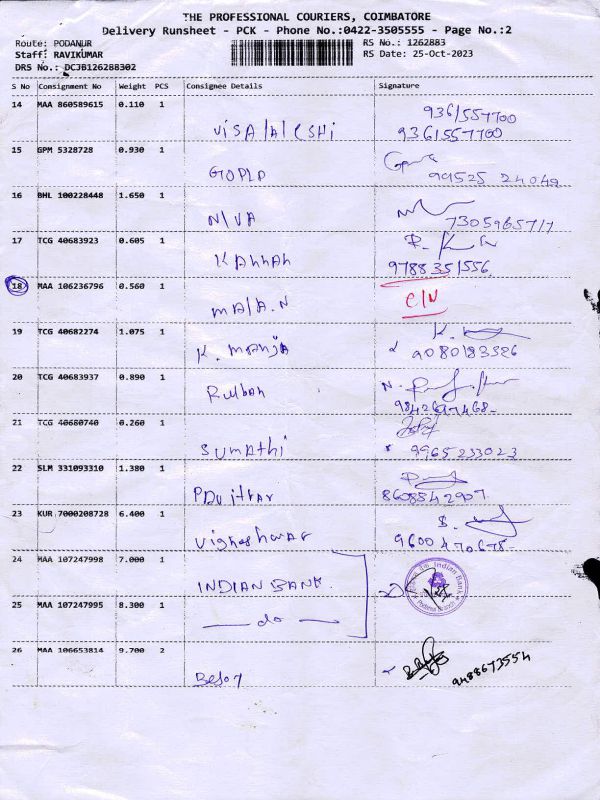 THE PROFESSIONAL COURIERS, COIMBATORE
Delivery Runsheet - PCK - Phone No.:0422-3505555 - Page No.:2
Route: PODANUR
RS No.: 1262883
Staff: RAVIKUMAR
RS Date: 25-Oct-2023
DRS No.: DCJB126288302
S No Consignment No Weight PCS Consignee Details Signature
14 MAA 860589615 0.110 1
9361557700
9361557700
15 GPM 5328728 0.930 1
GOPLD
99525 24042
16 BHL 100228448 1.650 1
NIVA
7305965717
17 TCG 40683923 0.605 1
KAnnAn
9788351556
18 MAA 106236796 0.560 1
C/N
mAlA.N
19 TCG 40682274 1.075 1
K. manja
9080183326
20 TCG 40683937 0.890 1
Rulban
9842697468
21 TCG 40680740 0.260 1
SumAthi
9965233023
22 SLM 331093310 1.380 1
8608542907
23 KUR 7000208728 6.400 1
Vigneshwar
9600470678
24 MAA 107247998 7.000 1
INDIAN BANK.
Indian Bank
25 MAA 107247995 8.300 1
do
26 MAA 106653814 9.700 2
9488673554